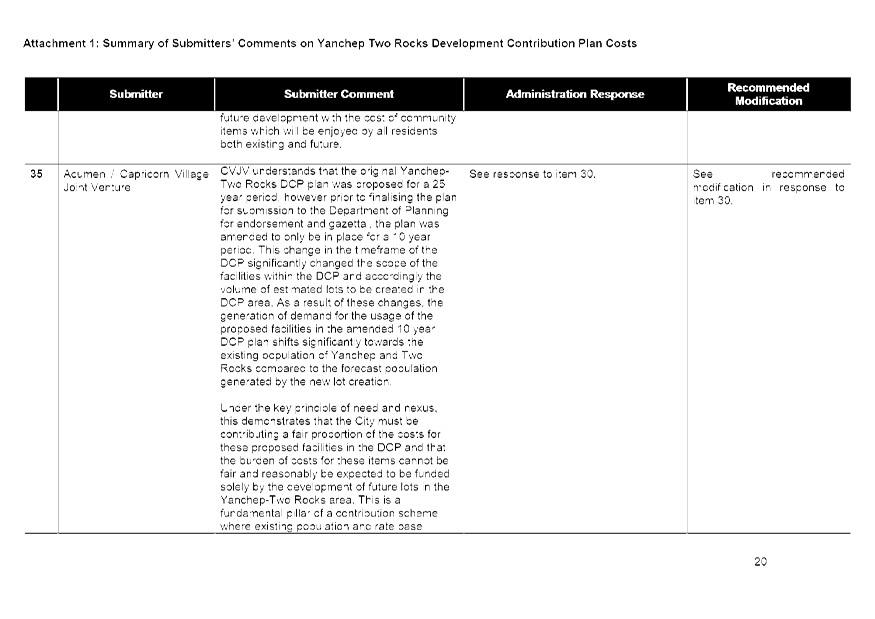 Attachment 1: Summary of Submitters' Comments on Yanchep Two Rocks Development Contribution Plan Costs
Submitter
Submitter Comment
Administration Response
Recommended
Modification
future development with the cost of community
items which will be enjoyed by all residents
both existing and future.
35
Acumen / Capricorn Village
Joint Venture
CVJV understands that the original Yanchep-
Two Rocks DCP plan was proposed for a 25
year period, however prior to finalising the plan
for submission to the Department of Planning
for endorsement and gazettal, the plan was
amended to only be in place for a 10 year
period. This change in the timeframe of the
DCP significantly changed the scope of the
facilities within the DCP and accordingly the
volume of estimated lots to be created in the
DCP area. As a result of these changes, the
generation of demand for the usage of the
proposed facilities in the amended 10 year
DCP plan shifts significantly towards the
existing population of Yanchep and Two
Rocks compared to the forecast population
generated by the new lot creation.
Under the key principle of need and nexus,
this demonstrates that the City must be
contributing a fair proportion of the costs for
these proposed facilities in the DCP and that
the burden of costs for these items cannot be
fair and reasonably be expected to be funded
solely by the development of future lots in the
Yanchep-Two Rocks area. This is a
fundamental pillar of a contribution scheme
where existing population and rate base
See response to item 30.
See recommended
modification in response to
item 30.
20